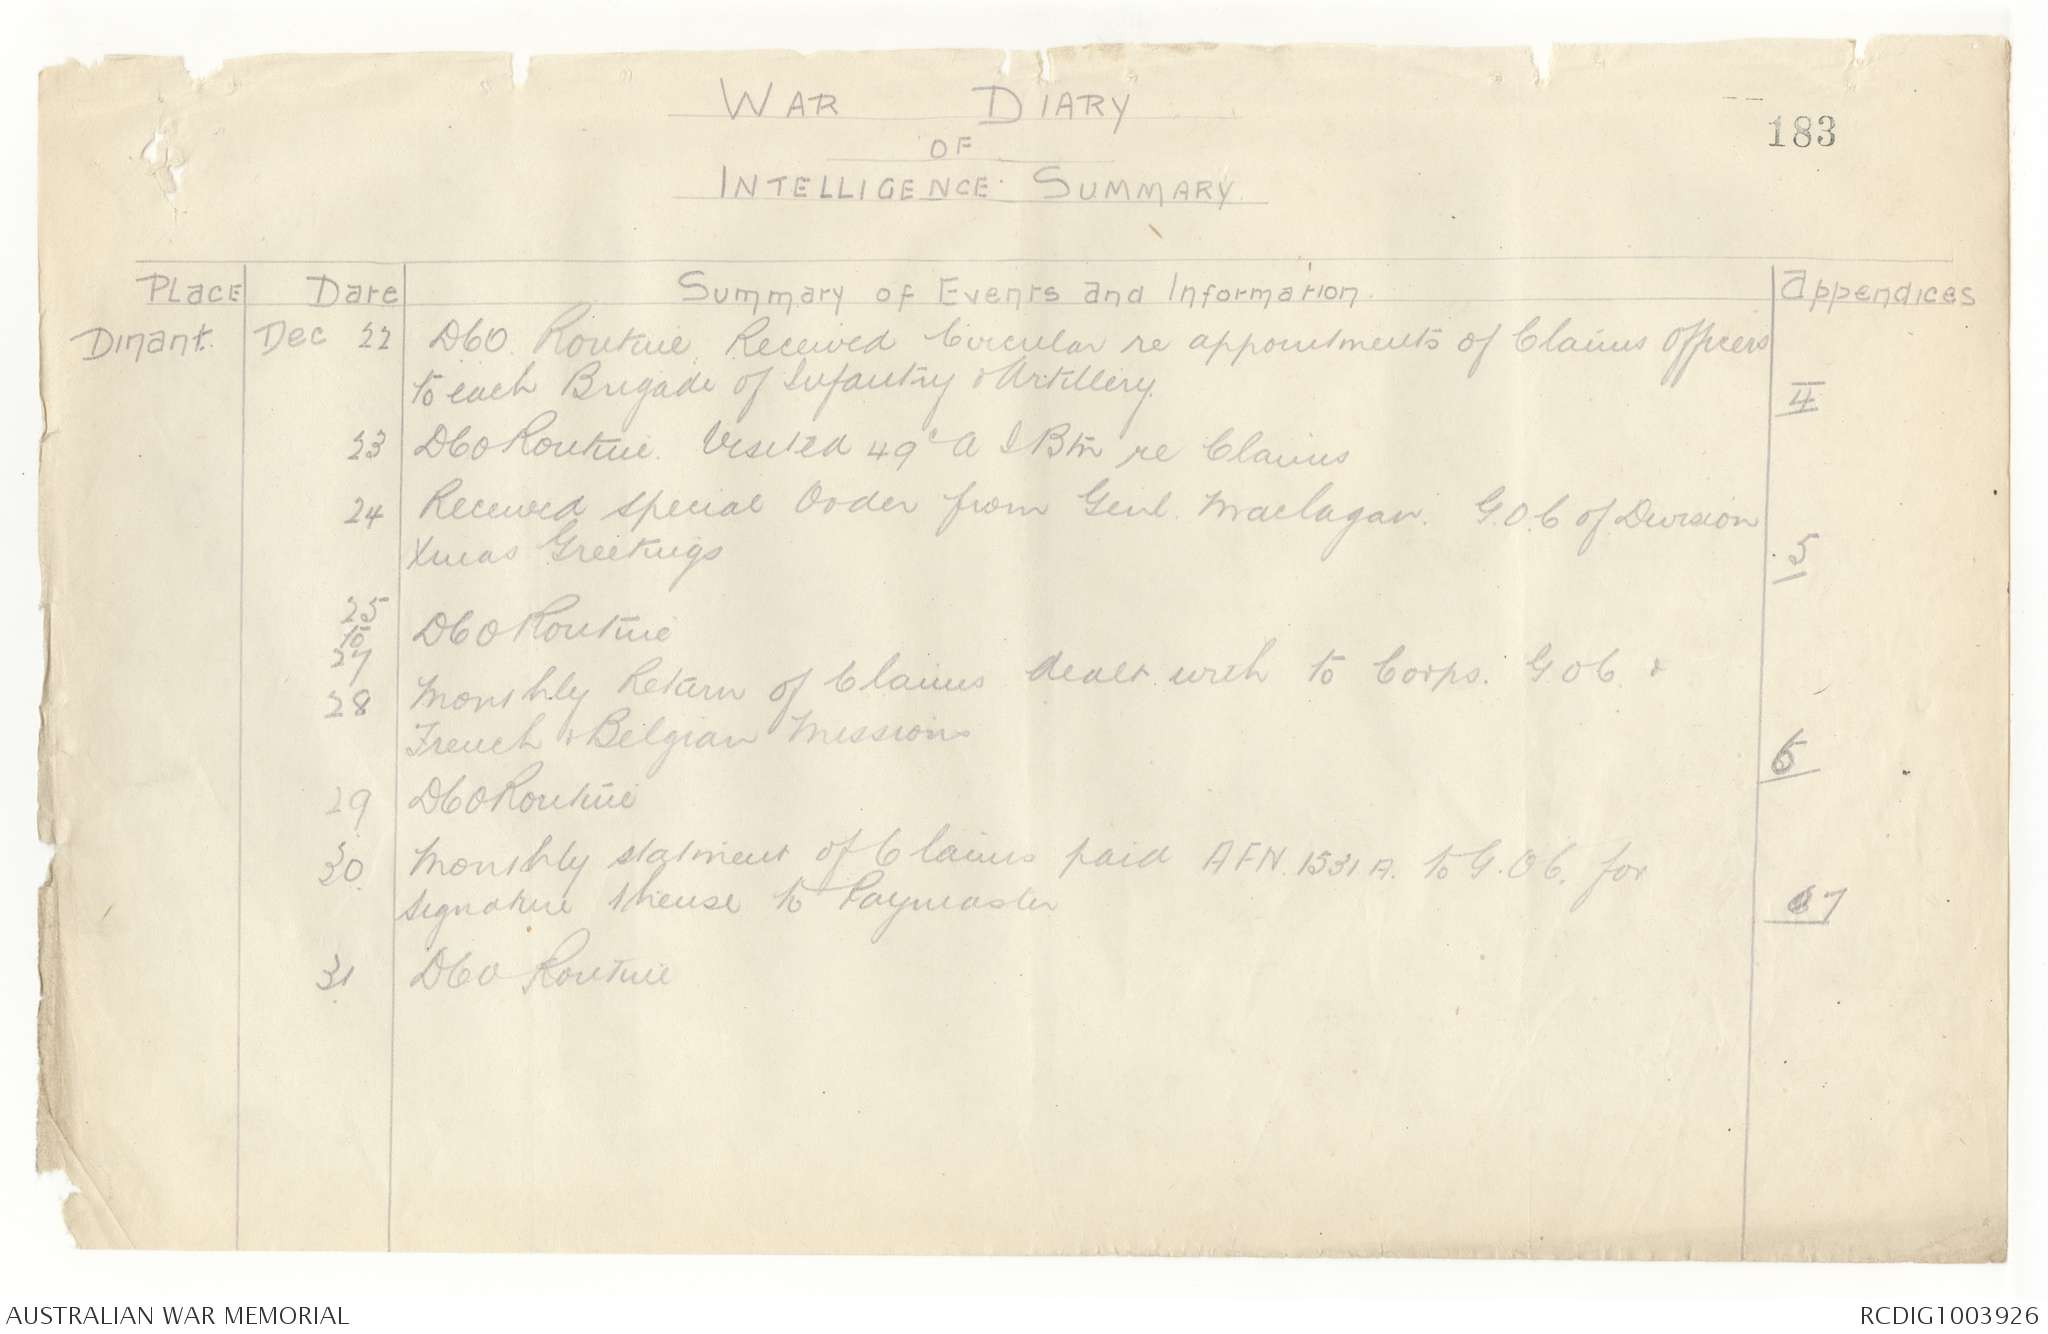 WAR DIARY
183
OF
INTELLIGENCE SUMMARY.
PLACE Date Summary of Events and Information. Appendices
Dinant. Dec 22 DCO. Routine. Received Circular re appointments of Claims Officers
to each Brigade of Infantry & Artillery. 4
23 DCO Routine. Visited 49 A I Btn re Claims
24 Received special Order from Genl. Maclagan. G.O.C of Division
Xmas Greetings 5
25
to
27 DCO Routine
28 Monthly Return of Claims dealt with to Corps. G.O.C. &
French & Belgian Missions 6
29 DCO Routine
30. Monthly statment of Claims paid AFN. 1531 A. to G.O.C. for
signature thense to Paymaster 7
31. DCO Routine
AUSTRALIAN WAR MEMORIAL RCDIG1003926